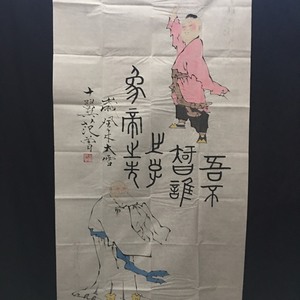 吾不
智誰
之子
象帝之先
大雪
十翼范曾